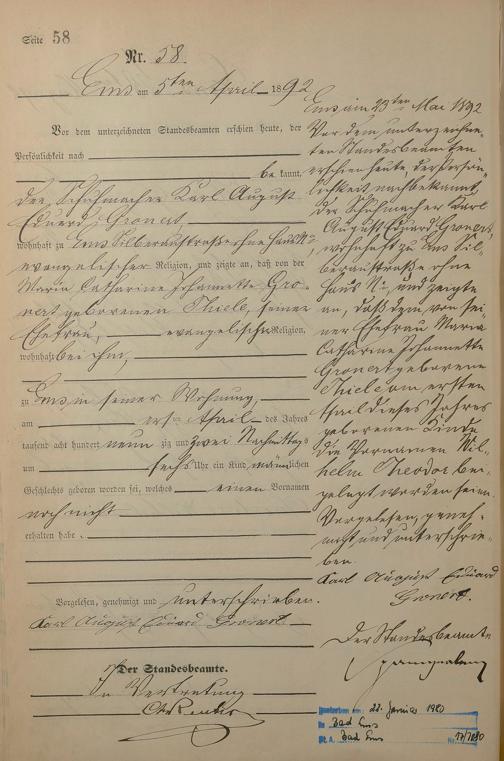 Seite 58
Nr. 58.
Ems am 5ten April 1892
Vor dem unterzeichneten Standesbeamten erschien heute, der
Persönlichkeit nach
be kannt,
der Schuhmacher Karl August
Eduard Gronert,
wohnhaft zu Ems Silberaustraße ohne Haus No,
evangelischer Religion, und zeigte an, daß von der
Maria Catharine Johannette Gro-
nert geborenen Thiele, seiner
Ehefrau, evangelischer Religion,
wohnhaft bei ihm,
zu Ems, in seiner Wohnung,
am ersten April des Jahres
tausend acht hundert neun zig und zwei Nachmittags
um sechs Uhr ein Kind männlichen
Geschlechts geboren worden sei, welches einen Vornamen
noch nicht
erhalten habe.
Vorgelesen, genehmigt und unterschrieben.
Karl August Eduard Gronert
Der Standesbeamte.
In Vertretung
Ems am 23ten Mai 1892
Vor dem unterzeichne-
ten Standesbeamten
erschien heute, der Persön-
lichkeit nach bekannt,
der Schuhmacher Karl
August Eduard Gronert,
wohnhaft zu Ems Sil-
beraustraße ohne
Haus No, und zeigte
an, daß dem, von sei-
ner Ehefrau Maria
Catharine Johannette
Gronert geborene
Thiele am ersten
April dieses Jahres
geborenen Kinde
die Vornamen Wil-
helm Theodor bei-
gelegt worden seien.
Vorgelesen, geneh-
migt und unterschrie-
ben.
Karl August Eduard
Gronert.
Der Standesbeamte
Gestorben am: 22. Januar 1980
in Bad Ems
St. A. Bad Ems Nr. 17/1980